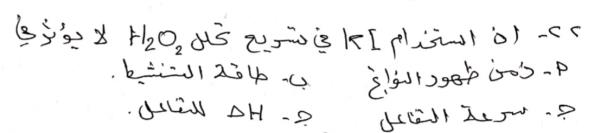 ٢٢- ان استخدام KI في تسريع تحلل H₂O₂ لا يؤثر في
P- زمن ظهور النواتج ب- طاقة التنشيط.
ج- سرعة التفاعل ج- ΔH للتفاعل.